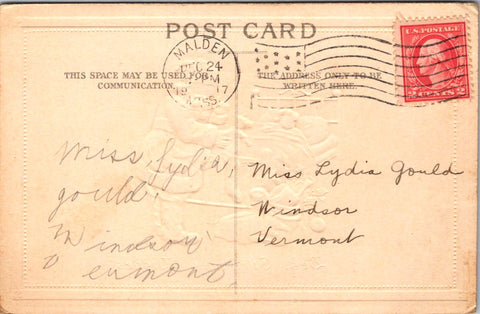 POST CARD
MALDEN
DEC 24
M
19 17
MASS.
U.S. POSTAGE
2 CENTS 2
THIS SPACE MAY BE USED FOR
COMMUNICATION.
THE ADDRESS ONLY TO BE
WRITTEN HERE.
Miss, Lydia,
gould,
Windsor
Vermont,
Miss Lydia Gould
Windsor
Vermont